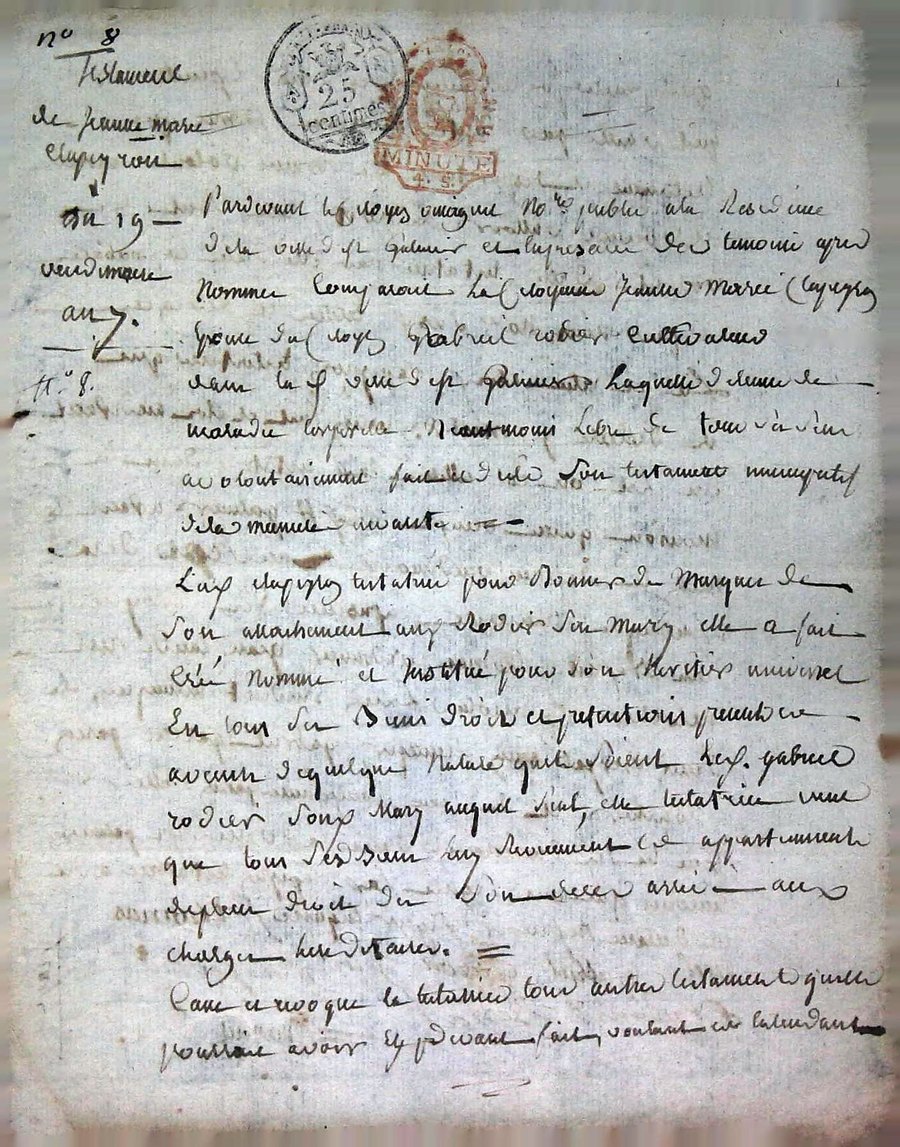 n° 8
testament
de Jeanne marie
clapeyron
du 19
vendemiaire
an 7.
n° 8.
25
centimes
MINUTE
4. S.
Pardevant le citoyen soussigné No.re public a la Residence
de la ville de st galmier et en presence des temoins apres
Nommes Comparait La Citoyenne Jeanne Marie Clapeyron
Epouse du Citoyen gabriel rodier Cultivateur
dans la d ville de st galmier Laquelle detenue de
maladie corporelle Neantmoins Libre de tous
a volontairement fait et dicté Son testament nuncupatif
de la maniere suivante
La clapeyron testatrice pour Donner des Marques de
Son attachement au Rodier Son Mary elle a fait
Créé, Nommé et Institué pour son Heritier universel
En tous ses Biens Droits et pretentions presents et a
avenir de quelque Nature qu'ils Soient Le gabriel
rodier Son Mary auquel Seul, elle testatrice veut
que tous Ses Biens luy Reviennent et appartiennent
de plein Droit des Son deces arrivé aux
charges hereditaires.
Casse et revoque la testatrice tous autres testament quelle
pourrait avoir Cy devant fait, voulant et entendant